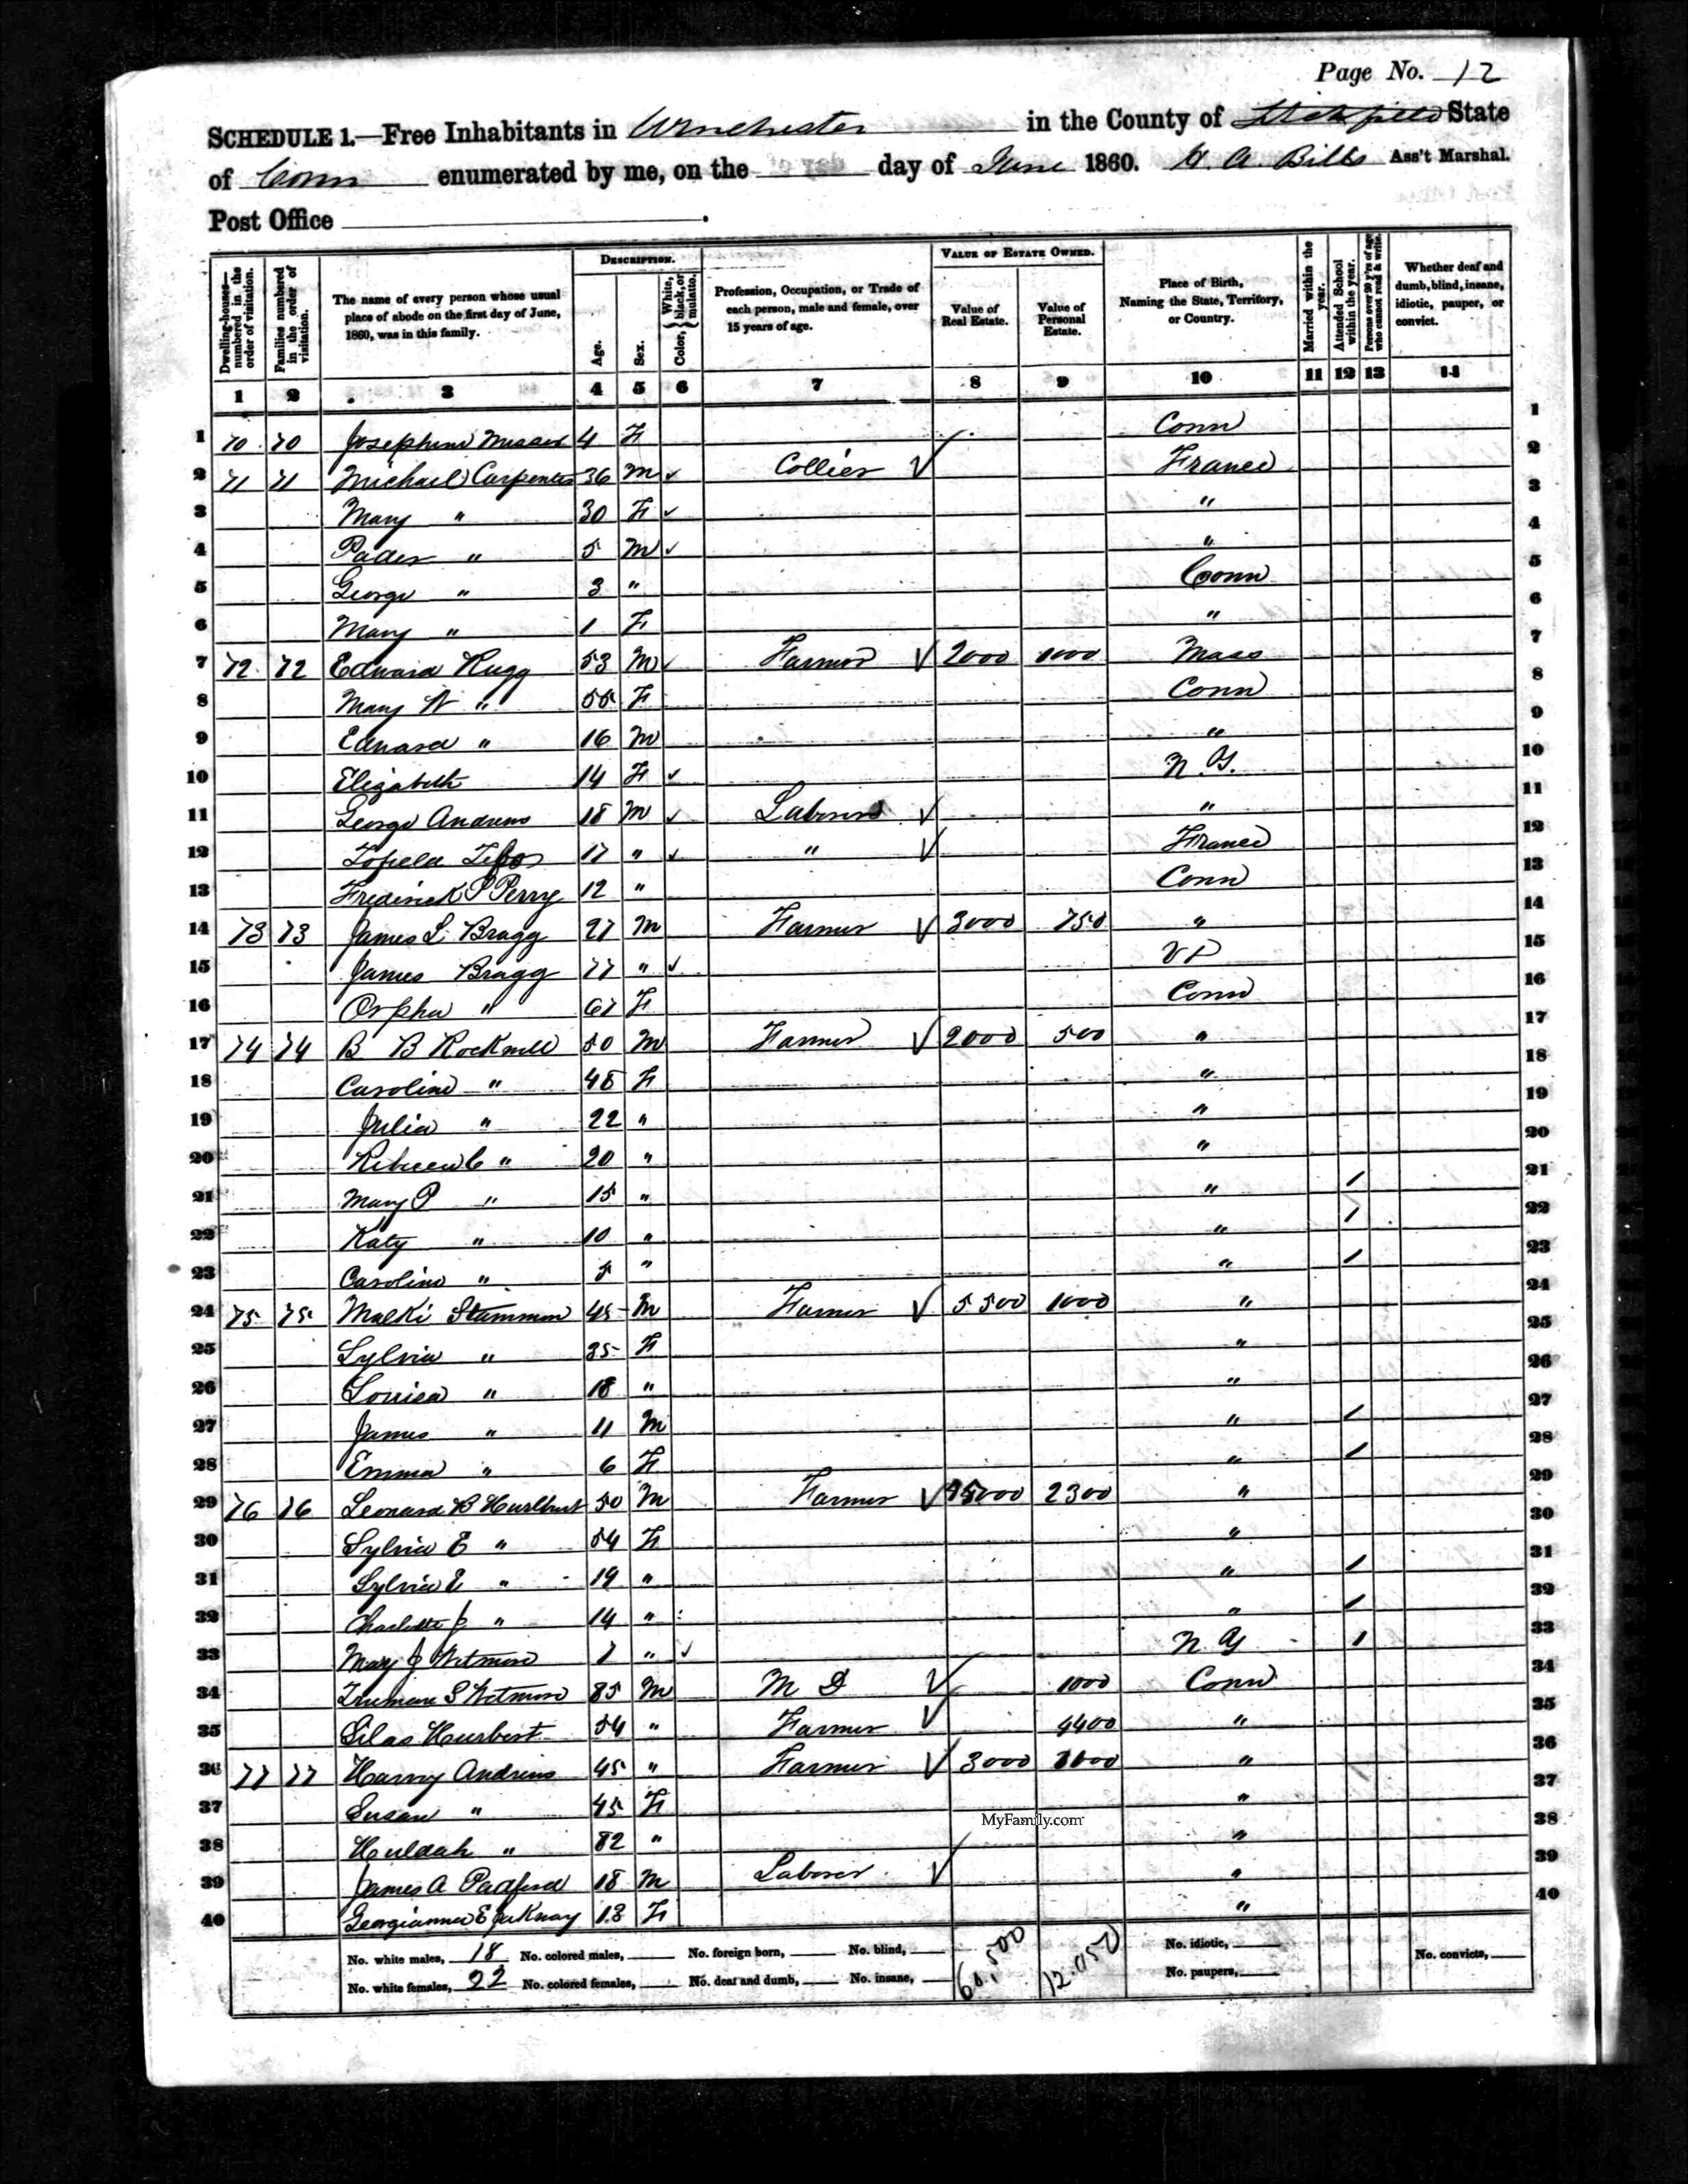 Page No. 12
SCHEDULE 1.—Free Inhabitants in Winchester in the County of Litchfield State
of Conn enumerated by me, on the day of June 1860. Ass't Marshal.
Post Office .
Dwelling-houses—numbered in the order of visitation. Families numbered in the order of visitation. The name of every person whose usual place of abode on the first day of June, 1860, was in this family. DESCRIPTION. Age. Sex. Color, { White, black, or mulatto. Profession, Occupation, or Trade of each person, male and female, over 15 years of age. VALUE OF ESTATE OWNED. Value of Real Estate. Value of Personal Estate. Place of Birth, Naming the State, Territory, or Country. Married within the year. Attended School within the year. Persons over 20 y'rs of age who cannot read & write. Whether deaf and dumb, blind, insane, idiotic, pauper, or convict.
1 2 3 4 5 6 7 8 9 10 11 12 13 14
1 70 70 Josephine 4 F Conn 1
2 71 71 Michael Carpenter 36 M ✓ Collier ✓ France 2
3 Mary " 30 F ✓ " 3
4 " 5 M ✓ " 4
5 George " 3 " Conn 5
6 Mary " 1 F " 6
7 72 72 Edward Rugg 53 M ✓ Farmer ✓ 2000 1000 Mass 7
8 Mary " 55 F Conn 8
9 Edward " 16 M " 9
10 Elizabeth 14 F ✓ N.Y. 10
11 George Andrews 18 M ✓ Laborer ✓ " 11
12 17 " ✓ " ✓ France 12
13 Frederick P Perry 12 " Conn 13
14 73 73 James L Bragg 27 M Farmer ✓ 3000 750 " 14
15 James Bragg 77 " ✓ 15
16 Orpha " 67 F Conn 16
17 74 74 B B Rockwell 50 M Farmer ✓ 2000 500 " 17
18 Caroline " 48 F " 18
19 Julia " 22 " " 19
20 " 20 " " 20
21 Mary P " 15 " " / 21
22 Katy " 10 " " / 22
23 Caroline " 5 " " / 23
24 75 75 45 M Farmer ✓ 5500 1000 " 24
25 Sylvia " 35 F " 25
26 Louisa " 18 " " 26
27 James " 11 M " / 27
28 Emma " 6 F " / 28
29 76 76 Leonard B Hurlbut 50 M Farmer ✓ 2300 " 29
30 Sylvia E " 54 F " 30
31 Sylvia E " 19 " " / 31
32 Charlotte J " 14 " " / 32
33 Mary J Wetmore 7 " ✓ N.Y / 33
34 Truman S Wetmore 85 M M D ✓ 1000 Conn 34
35 Silas Hurbert 54 " Farmer ✓ 4400 " 35
36 77 77 Harry Andrews 45 " Farmer ✓ 3000 " 36
37 Susan " 45 F " 37
38 Huldah " 82 " " 38
39 James A 18 M Laborer ✓ " 39
40 13 F " 40
MyFamily.com
No. white males, 18 No. colored males, No. foreign born, No. blind, No. idiotic, No. convicts,
No. white females, 22 No. colored females, No. deaf and dumb, No. insane, 60,500 No. paupers,